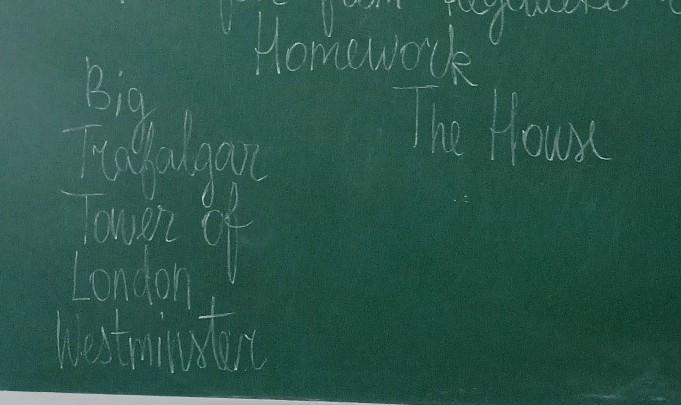 Homework
Big
The House
Trafalgar
Tower of
London
Westminster